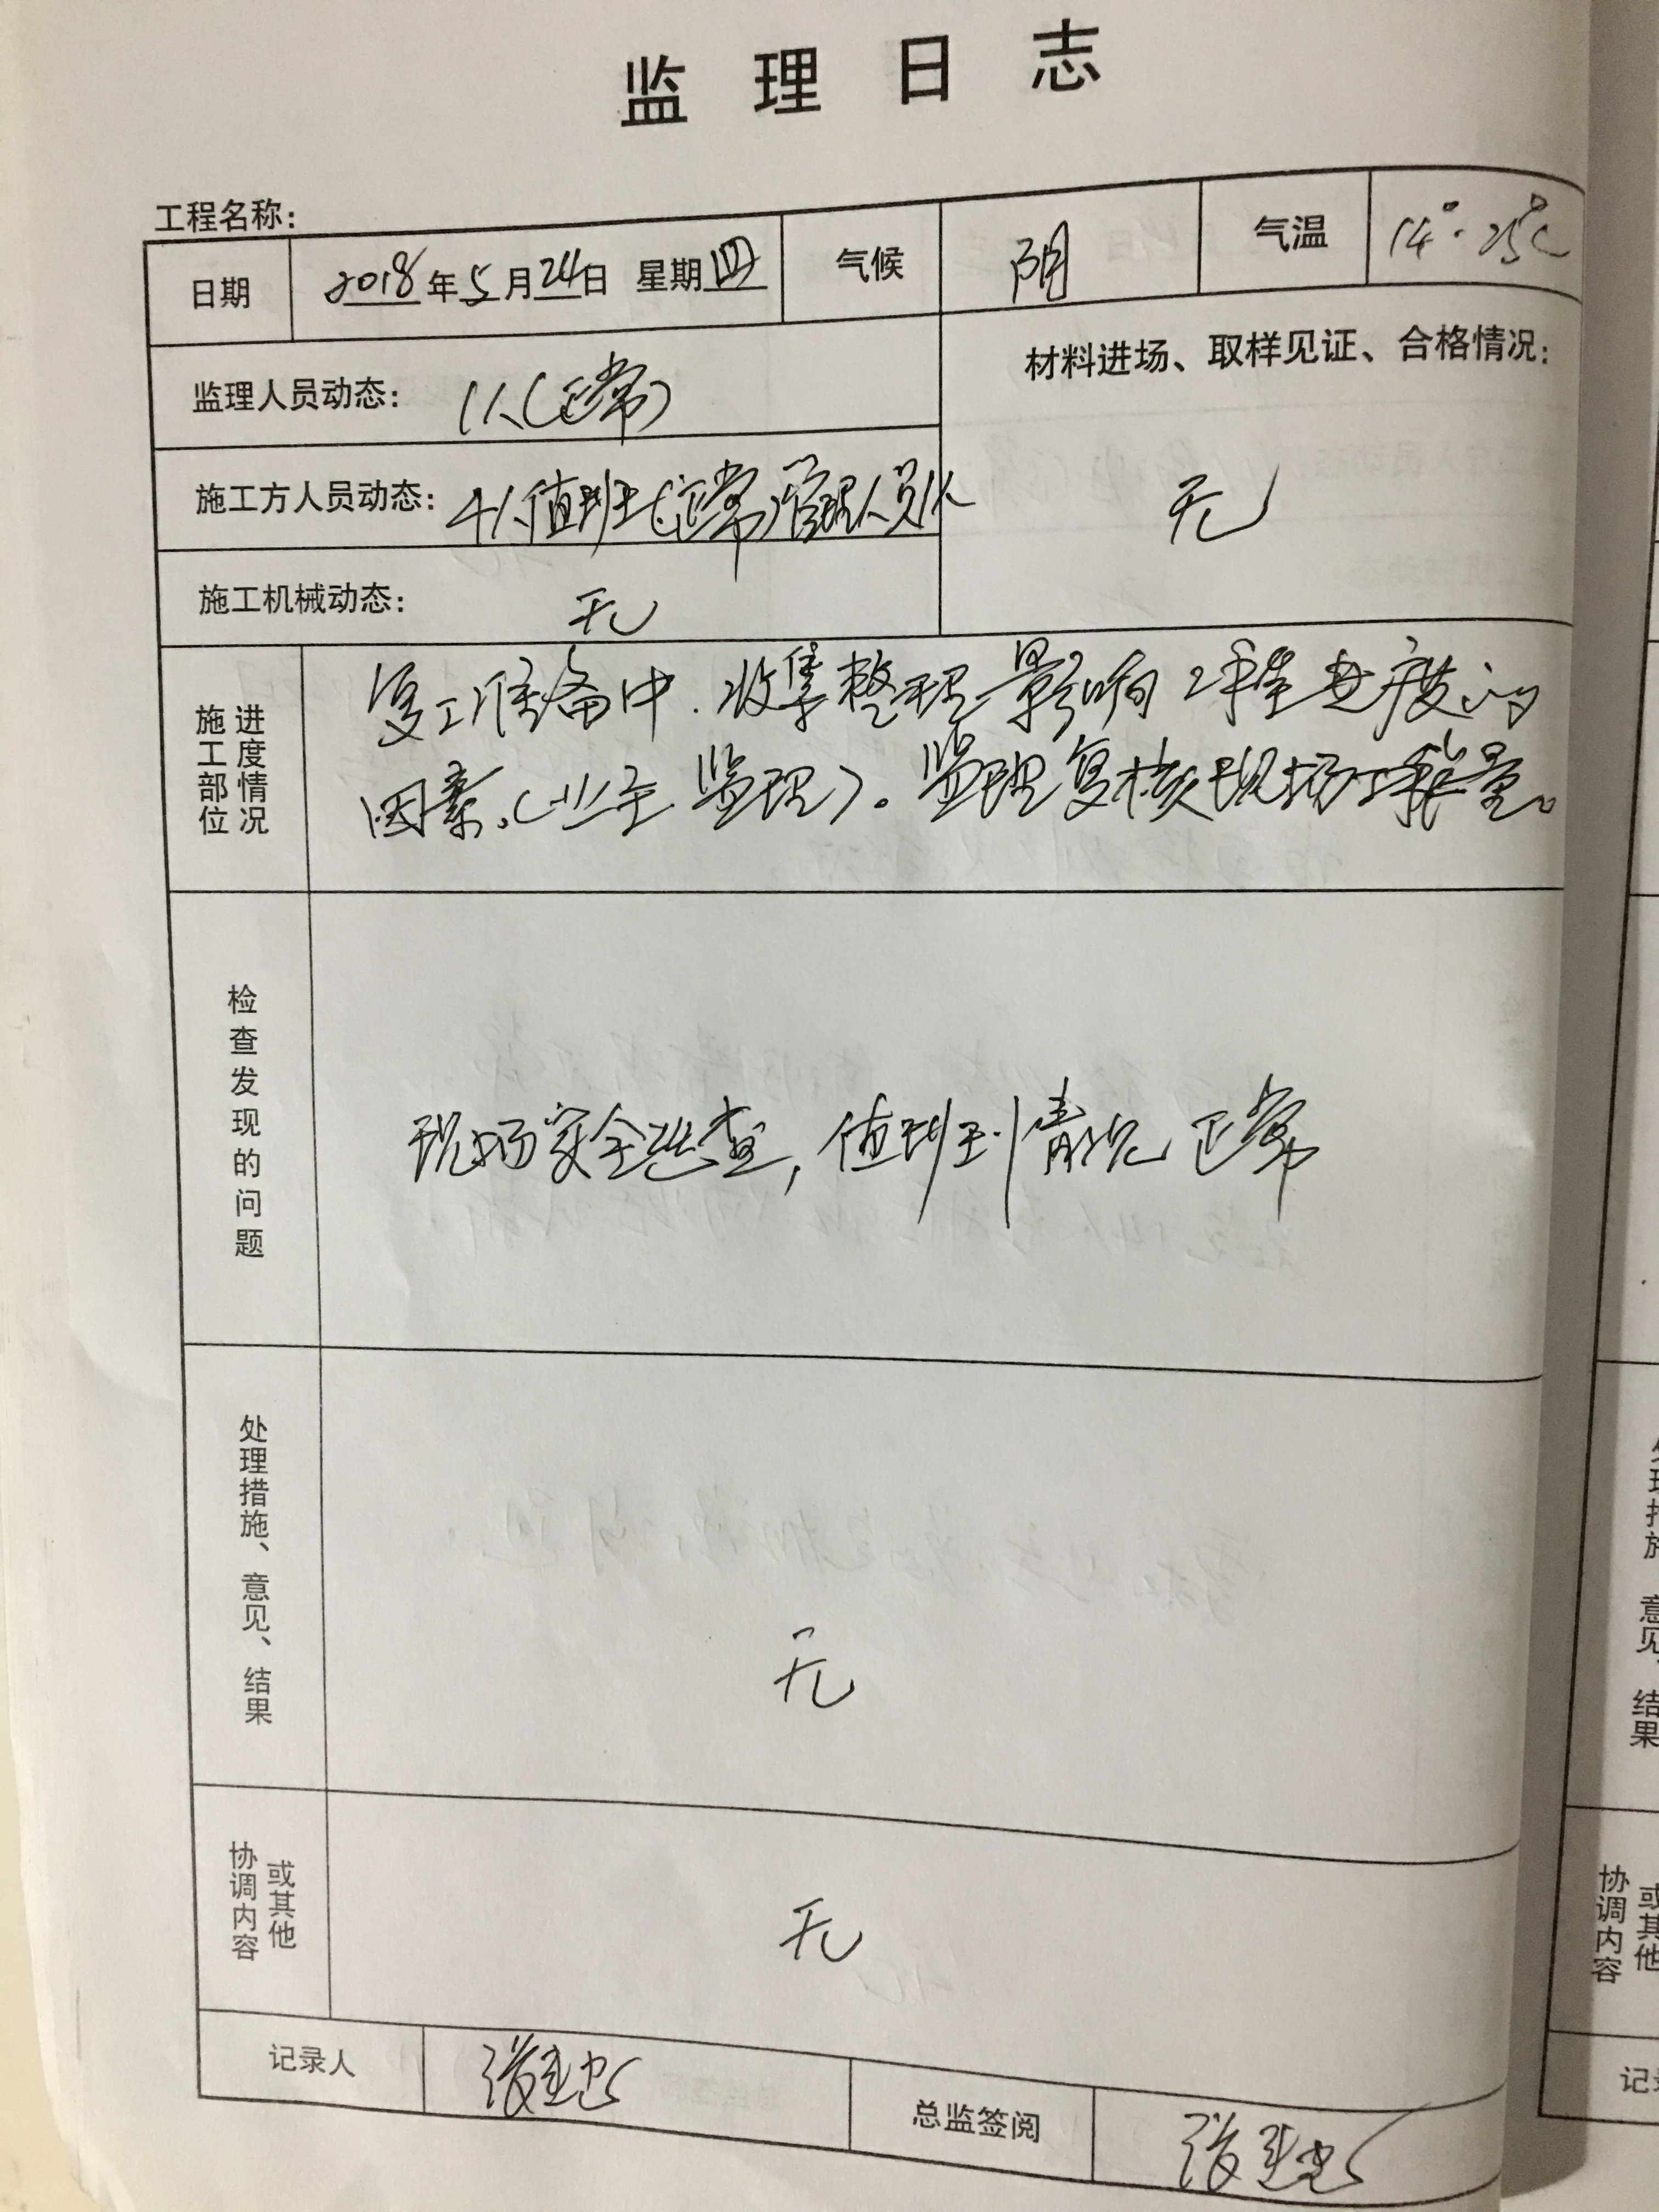 监理日志
工程名称：
日期 2018年5月24日 星期四 气候 阴 气温 14°·25℃
监理人员动态： 1人（正常）
材料进场、取样见证、合格情况：
无
施工方人员动态： 4人值班（正常）管理人员1人
施工机械动态： 无
施工部位进度情况
复工准备中．收集整理影响工程进度的
因素。（业主．监理）。监理复核现场工程量。
检查发现的问题
现场安全巡查，值班到情况正常
处理措施、意见、结果
无
协调内容或其他
无
记录人
总监签阅
协调内容
或其他